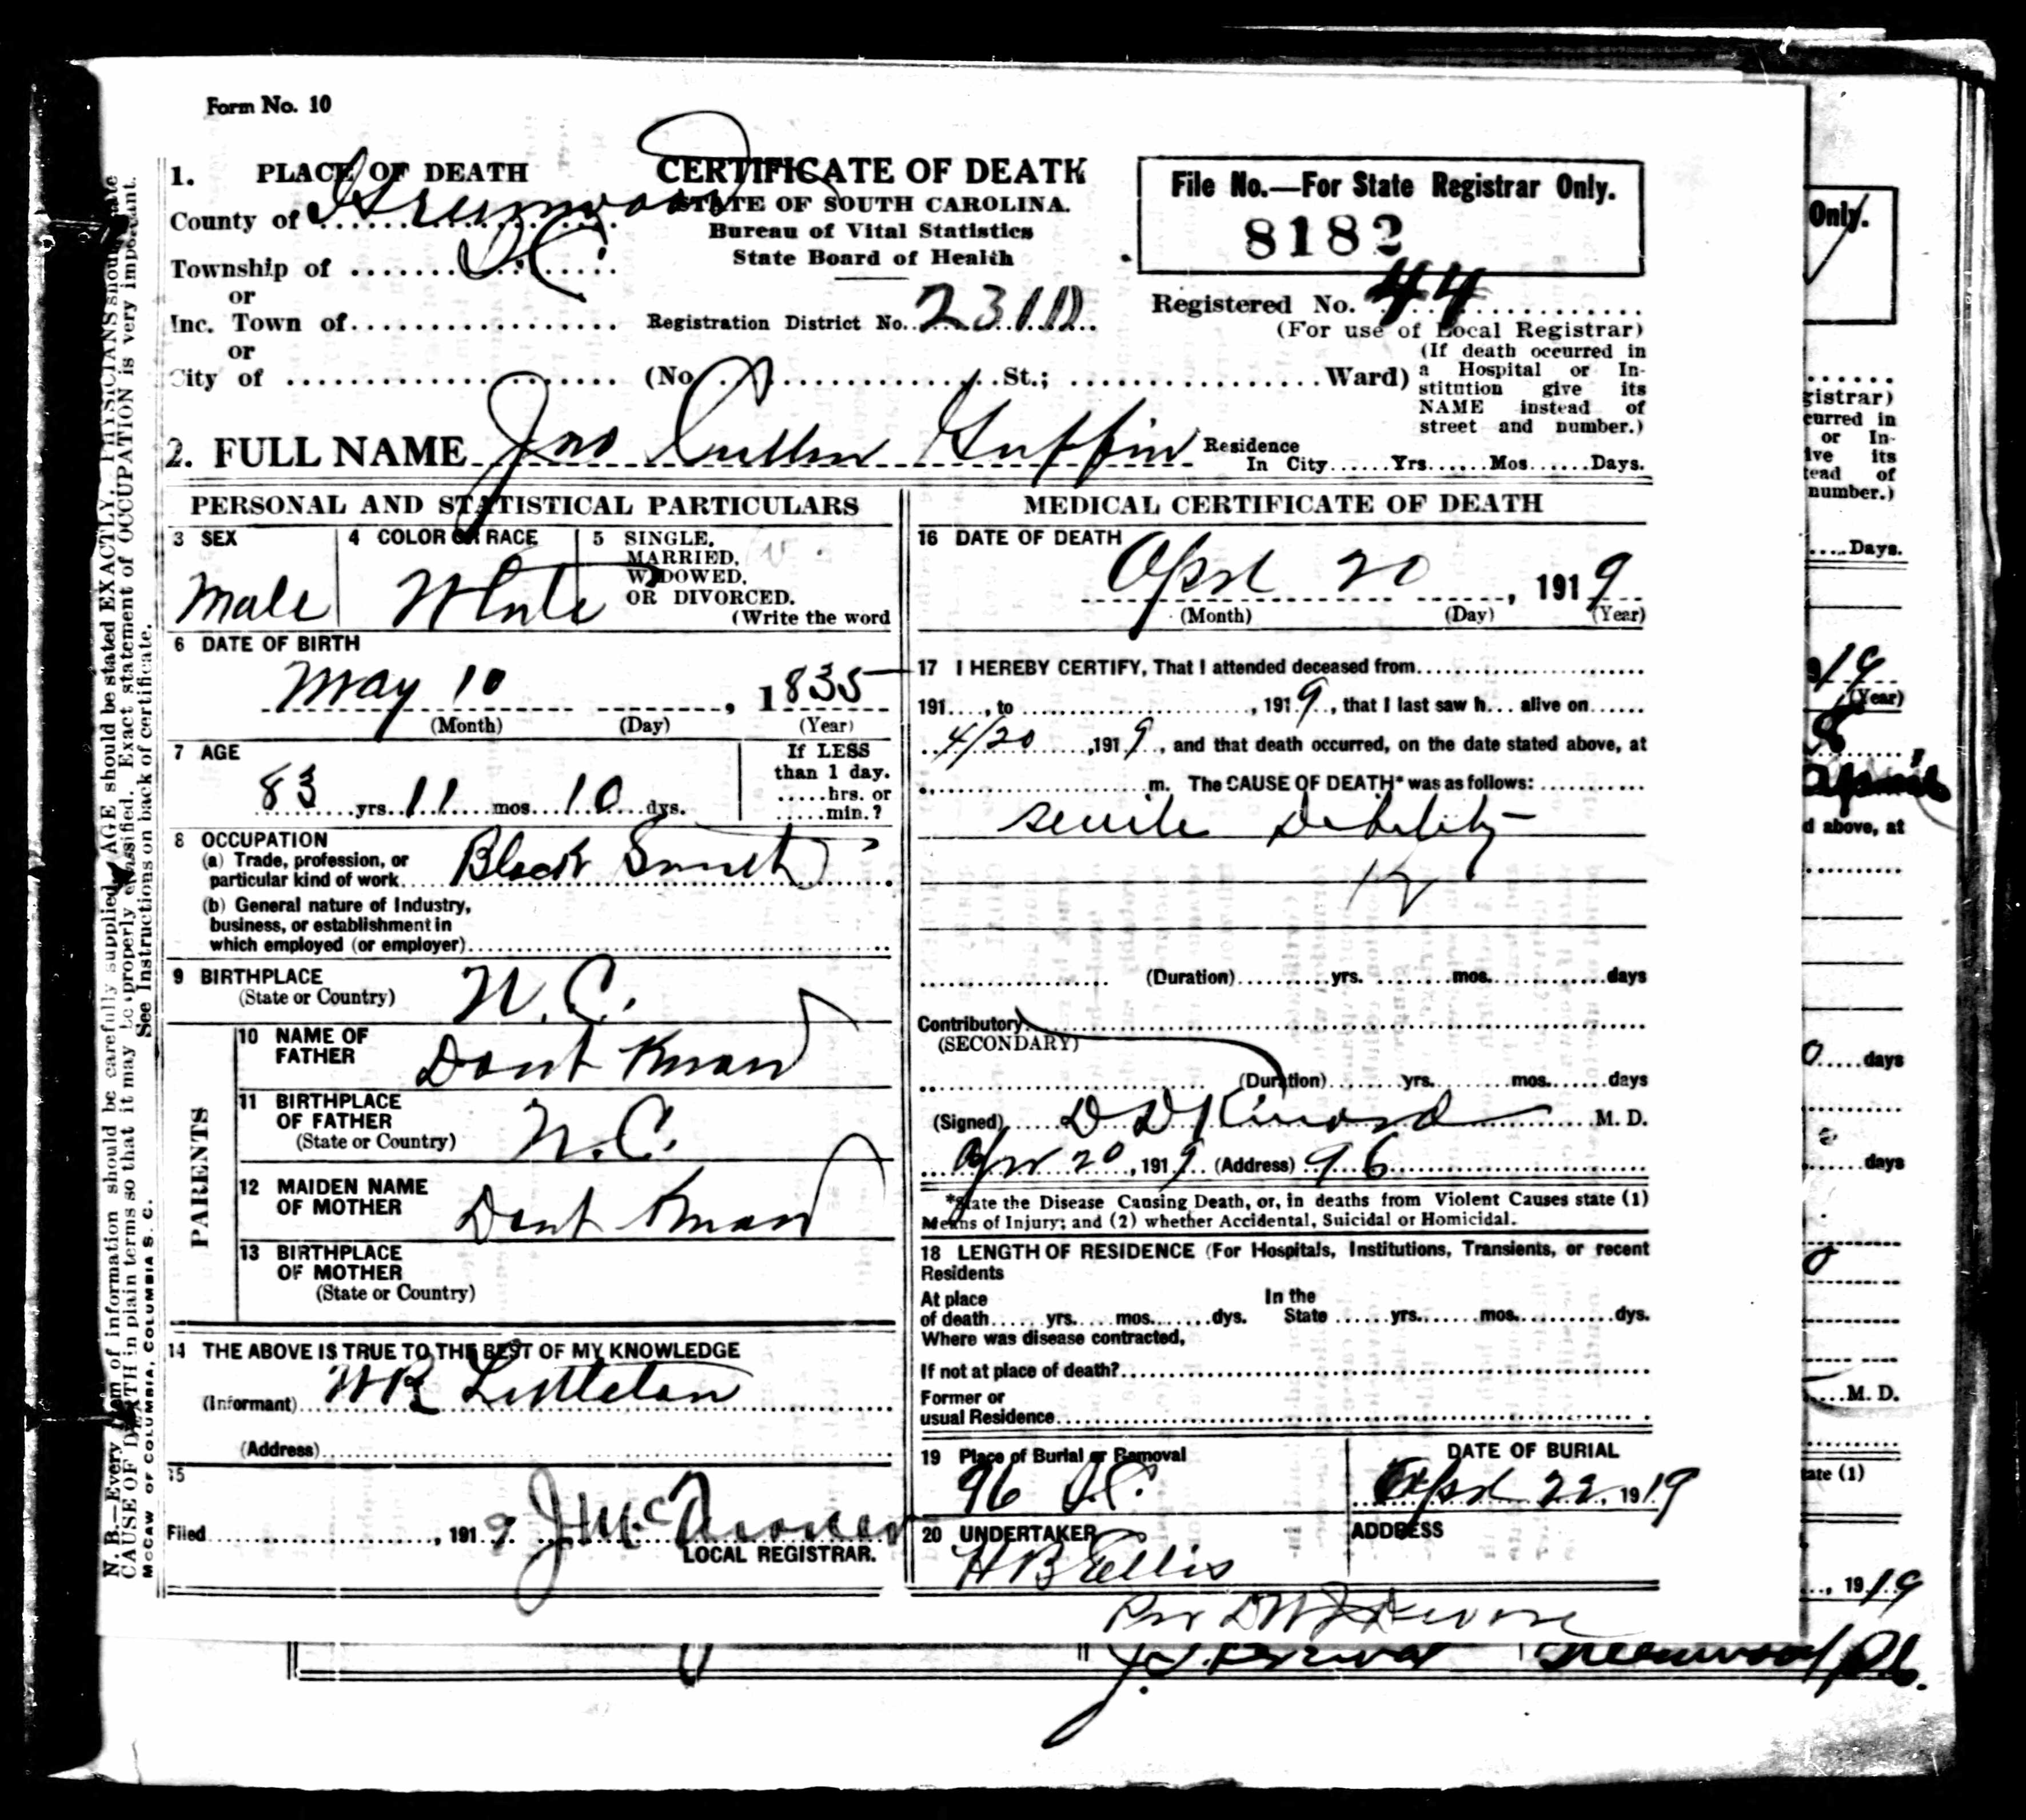 Form No. 10
1. PLACE OF DEATH
County of Greenwood
Township of S.C.
or
Inc. Town of
or
City of (No. St.; Ward)
CERTIFICATE OF DEATH
STATE OF SOUTH CAROLINA.
Bureau of Vital Statistics
State Board of Health
Registration District No. 231
File No.—For State Registrar Only.
8182
Registered No. 44
(For use of Local Registrar)
(If death occurred in
a Hospital or In-
stitution give its
NAME instead of
street and number.)
2. FULL NAME Jno Cullen Guffin
Residence
In City......Yrs......Mos......Days.
PERSONAL AND STATISTICAL PARTICULARS
3 SEX
Male
4 COLOR OR RACE
White
5 SINGLE,
MARRIED,
WIDOWED,
OR DIVORCED.
(Write the word
6 DATE OF BIRTH
May 10, 1835
(Month) (Day) (Year)
7 AGE
83 yrs. 11 mos. 10 dys.
If LESS
than 1 day.
.....hrs. or
.....min.?
8 OCCUPATION
(a) Trade, profession, or
particular kind of work.... Black Smith
(b) General nature of Industry,
business, or establishment in
which employed (or employer)
9 BIRTHPLACE
(State or Country) N.C.
PARENTS
10 NAME OF
FATHER Dont Know
11 BIRTHPLACE
OF FATHER
(State or Country) N.C.
12 MAIDEN NAME
OF MOTHER Dont Know
13 BIRTHPLACE
OF MOTHER
(State or Country)
14 THE ABOVE IS TRUE TO THE BEST OF MY KNOWLEDGE
(Informant) WR Littleton
(Address)
15
Filed , 1919
LOCAL REGISTRAR.
MEDICAL CERTIFICATE OF DEATH
16 DATE OF DEATH
Aprl 20, 1919
(Month) (Day) (Year)
17 I HEREBY CERTIFY, That I attended deceased from
191...., to , 1919, that I last saw h... alive on
4/20, 1919, and that death occurred, on the date stated above, at
m. The CAUSE OF DEATH* was as follows:
senile Debility
(Duration) yrs. mos. days
Contributory
(SECONDARY)
(Duration) yrs. mos. days
(Signed) D D Kinard M. D.
Apr 20, 1919 (Address) 96
*State the Disease Causing Death, or, in deaths from Violent Causes state (1)
Means of Injury; and (2) whether Accidental, Suicidal or Homicidal.
18 LENGTH OF RESIDENCE (For Hospitals, Institutions, Transients, or recent
Residents
At place In the
of death......yrs......mos.......dys. State......yrs.......mos..........dys.
Where was disease contracted,
If not at place of death?
Former or
usual Residence
19 Place of Burial or Removal
96 S.C.
DATE OF BURIAL
Aprl 22, 1919
20 UNDERTAKER
H B Ellis
ADDRESS
N. B.—Every item of information should be carefully supplied. AGE should be stated EXACTLY. PHYSICIANS should state
CAUSE OF DEATH in plain terms so that it may be properly classified. Exact statement of OCCUPATION is very important.
See Instructions on back of certificate.
McCAW OF COLUMBIA, COLUMBIA S. C.
Only.
gistrar)
curred in
or In-
ive its
tead of
number.)
....Days.
(Year)
April
d above, at
days
days
M. D.
tate (1)
, 1919
Greenwood, S.C.